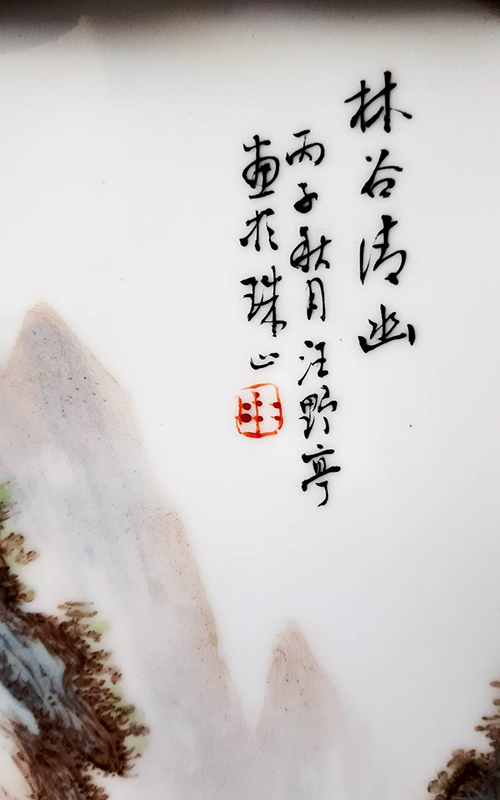 林谷清幽
丙子秋月汪野亭
畫於珠山